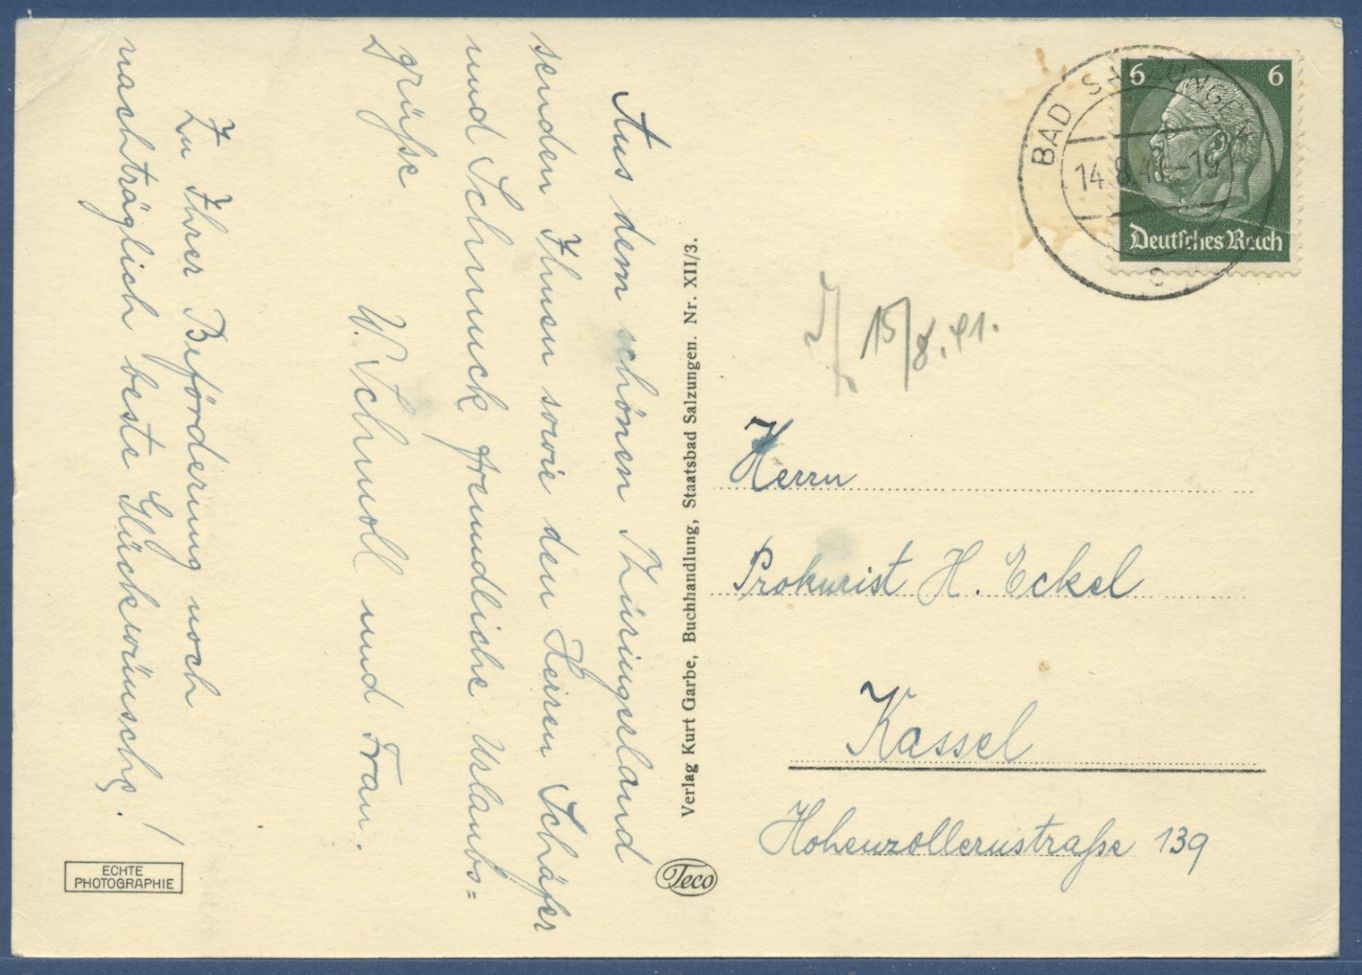 Aus dem schönen Thüringerland
senden Ihnen sowie den Herren Schäfer
und Schmuck freundliche Urlaubs=
grüße
W. Schmoll und Frau.
Zu Ihrer Beförderung noch
nachträglich beste Glückwünsche!
ECHTE
PHOTOGRAPHIE
Verlag Kurt Garbe, Buchhandlung, Staatsbad Salzungen. Nr. XII/3.
Teco
BAD SALZUNGEN
14.8.41-19
c
6 6
Deutsches Reich
15/8.41.
Herrn
Prokurist H. Eckel
Kassel
Hohenzollernstraße 139